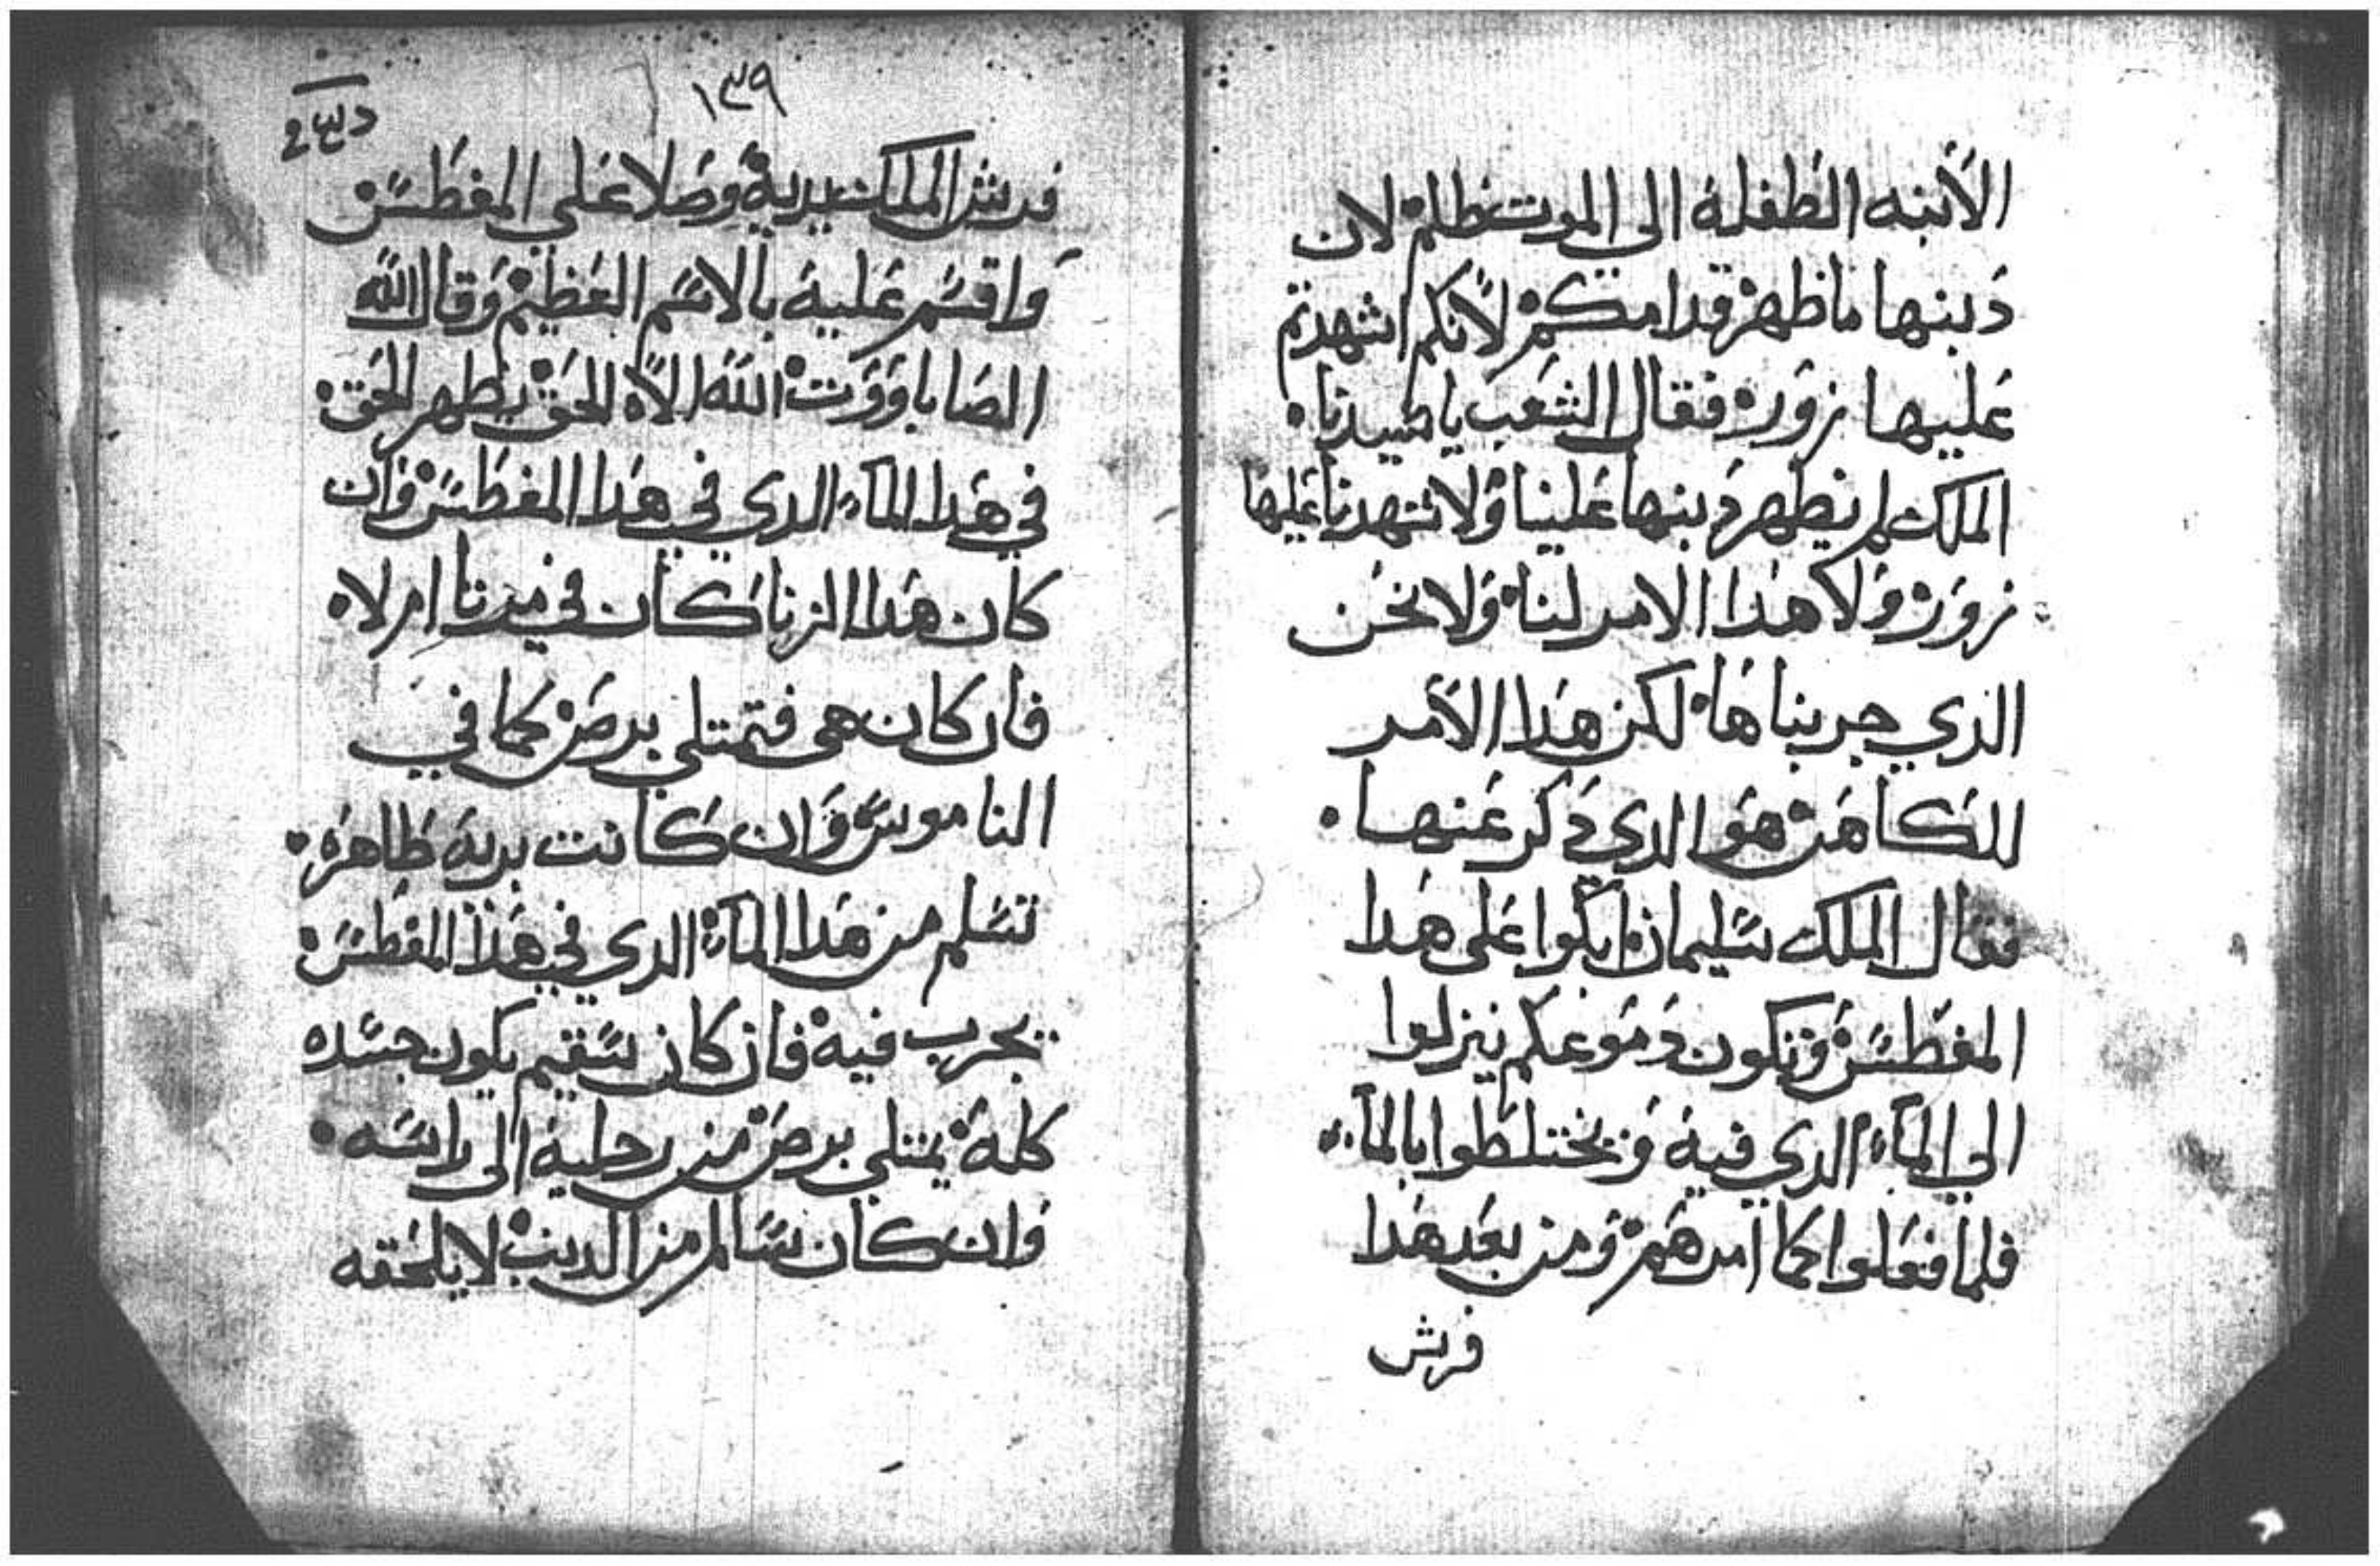 الأبنه الطفله الى الموت ظلم لان
دبنها ما ظهر قدامكم لأنكم اشهدتم
عليها زور فقال الشعب يا سيدنا
الملك لم يظهر دبنها علينا ولا شهدنا عليها
زور ولا هذا الامر لنا ولا نحن
الذي جربناها لكن هذا الأمر
للكاهن هو الدي دكر عنها
فقال الملك سليمان ابكوا على هدا
المغطس وتكون دموعكم ينزلوا
الي المآء الدي فيه ويختلطوا بالمآء
فلما فعلوا كما امرهم ومن بعد هدا
فرش
١٣٩
فرش الملك يديه وصلا علي المغطس
واقسم عليه بالاسم العظيم وقال الله
الصاباووت الله الاه الحق يظهر الحق
في هدا المآء الدي في هدا المغطس وان
كان هدا الزنا كان في مرتا ام لاه
فان كان هى فتمتلي برص كما في
الناموس وان كانت بريه طاهره
تسلم من هدا المآء الدي في هدا المغطس
يجرب فيه فان كان سقيم يكون جسده
كله يمتلي برص من رجليه الى راسه
وان كان سالم من الدنب لا يلحقه